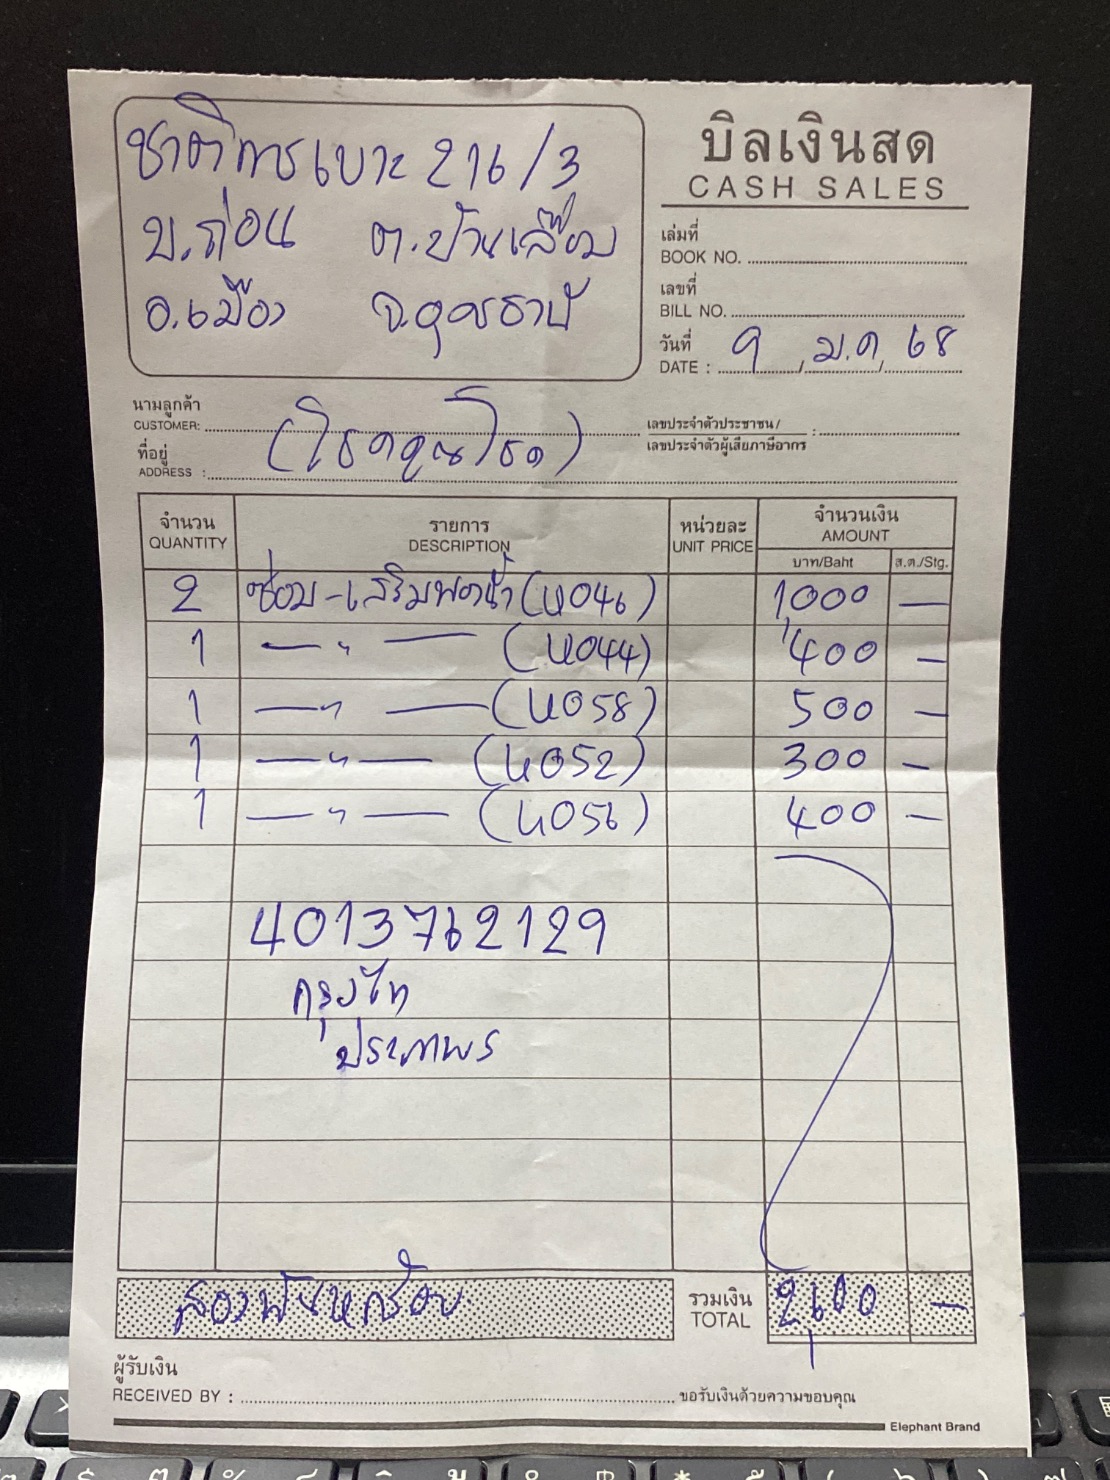 ชาติการเบาะ 216/3
บ.ก่อน ต.บ้านเลื่อม
อ.เมือง จ.อุดรธานี
บิลเงินสด
CASH SALES
เล่มที่
BOOK NO.
เลขที่
BILL NO.
วันที่
DATE : 9 / ม.ค. / 68
นามลูกค้า
CUSTOMER: (โชคคูณโชค)
เลขประจำตัวประชาชน /
เลขประจำตัวผู้เสียภาษีอากร :
ที่อยู่
ADDRESS :
จำนวน รายการ หน่วยละ จำนวนเงิน
QUANTITY DESCRIPTION UNIT PRICE AMOUNT
บาท/Baht ส.ต./Stg.
2 ซ่อม-เสริมพนัง (น046) 1,000 —
1 — " — (น044) 400 —
1 — " — (น058) 500 —
1 — " — (น052) 300 —
1 — " — (น056) 400 —
4013762129
กรุงไท
ประภาพร
สองพันหกร้อย รวมเงิน 2,600 —
TOTAL
ผู้รับเงิน
RECEIVED BY : ขอรับเงินด้วยความขอบคุณ
Elephant Brand